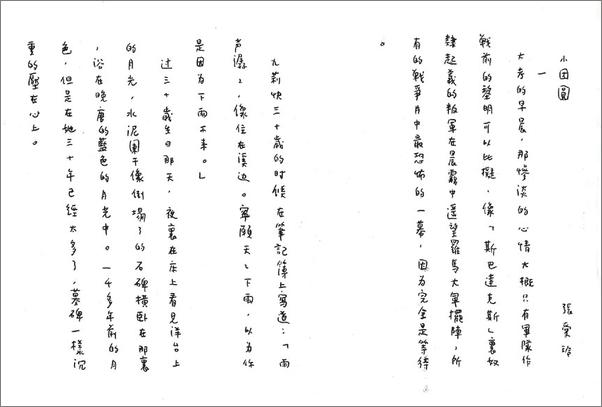 小团圓
張愛玲
一
大考的早晨，那惨淡的心情大概只有軍隊作
戰前的黎明可以比擬，像「斯巴達克斯」裏奴
隸起義的叛軍在晨霧中遙望羅馬大軍擺陣，所
有的戰爭片中最恐怖的一幕，因为完全是等待
。
九莉快三十歲的时候在筆記簿上寫道：「雨
声潺〻，像住在溪边。寧願天〻下雨，以为你
是因为下雨不来。」
过三十歲生日那天，夜裏在床上看見洋台上
的月光，水泥闌干像倒塌了的石碑横卧在那裏
，浴在晚唐的藍色的月光中。一千多年前的月
色，但是在她三十年已經太多了，墓碑一樣沉
重的壓在心上。
2